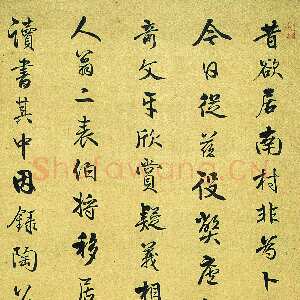 昔欲居南村非為卜
今日從茲役弊廬
奇文互欣賞疑義相
人翁二表伯將移居
讀書其中因錄陶公
Shufawang.Cn